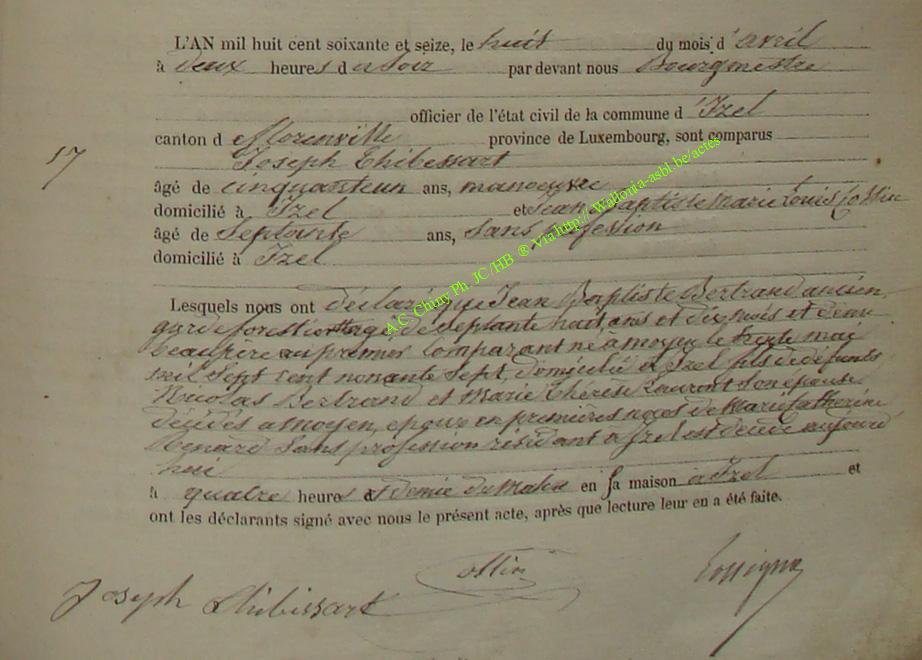 L'AN mil huit cent soixante et seize, le huit du mois d'avril
à deux heures du soir par devant nous Bourgmestre
officier de l'état civil de la commune d'Izel
canton de Florenville province de Luxembourg, sont comparus
17
Joseph Thibessart
âgé de cinquanteun ans, manoeuvre
domicilié à Izel et Jean Baptiste Marie Louis Collin
âgé de septante ans, sans profession
domicilié à Izel
Lesquels nous ont déclaré que Jean Baptiste Bertrand ancien
garde forestier agé de septante huit ans et dix mois et demi
beaupère au premier Comparant né à moyen le trente mai
mil sept cent nonante sept, domicilié à Izel fils de defunts
Nicolas Bertrand et Marie Thérèse Lauront son épouse
décédés a moyen, epoux en premières noces de Marie Catherine
Renard sans profession résidant à Izel est décédé aujourd
hui
à quatre heures et demie du matin en sa maison à Izel et
ont les déclarants signé avec nous le présent acte, après que lecture leur en a été faite.
Joseph Thibissart
A.C. Chiny Ph. JC/HB ® via http://Wallonia-asbl.be/actes